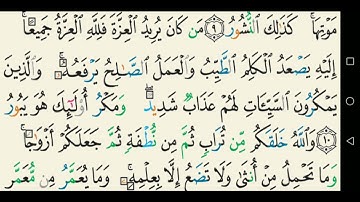 مَوْتِهَاۚ كَذَٰلِكَ ٱلنُّشُورُ ٩ مَن كَانَ يُرِيدُ ٱلْعِزَّةَ فَلِلَّهِ ٱلْعِزَّةُ جَمِيعًاۚ
إِلَيْهِ يَصْعَدُ ٱلْكَلِمُ ٱلطَّيِّبُ وَٱلْعَمَلُ ٱلصَّٰلِحُ يَرْفَعُهُۥۚ وَٱلَّذِينَ
يَمْكُرُونَ ٱلسَّيِّـَٔاتِ لَهُمْ عَذَابٌ شَدِيدٌۖ وَمَكْرُ أُو۟لَٰٓئِكَ هُوَ يَبُورُ
١٠ وَٱللَّهُ خَلَقَكُم مِّن تُرَابٍ ثُمَّ مِن نُّطْفَةٍ ثُمَّ جَعَلَكُمْ أَزْوَٰجًاۚ
وَمَا تَحْمِلُ مِنْ أُنثَىٰ وَلَا تَضَعُ إِلَّا بِعِلْمِهِۦۚ وَمَا يُعَمَّرُ مِن مُّعَمَّرٍ